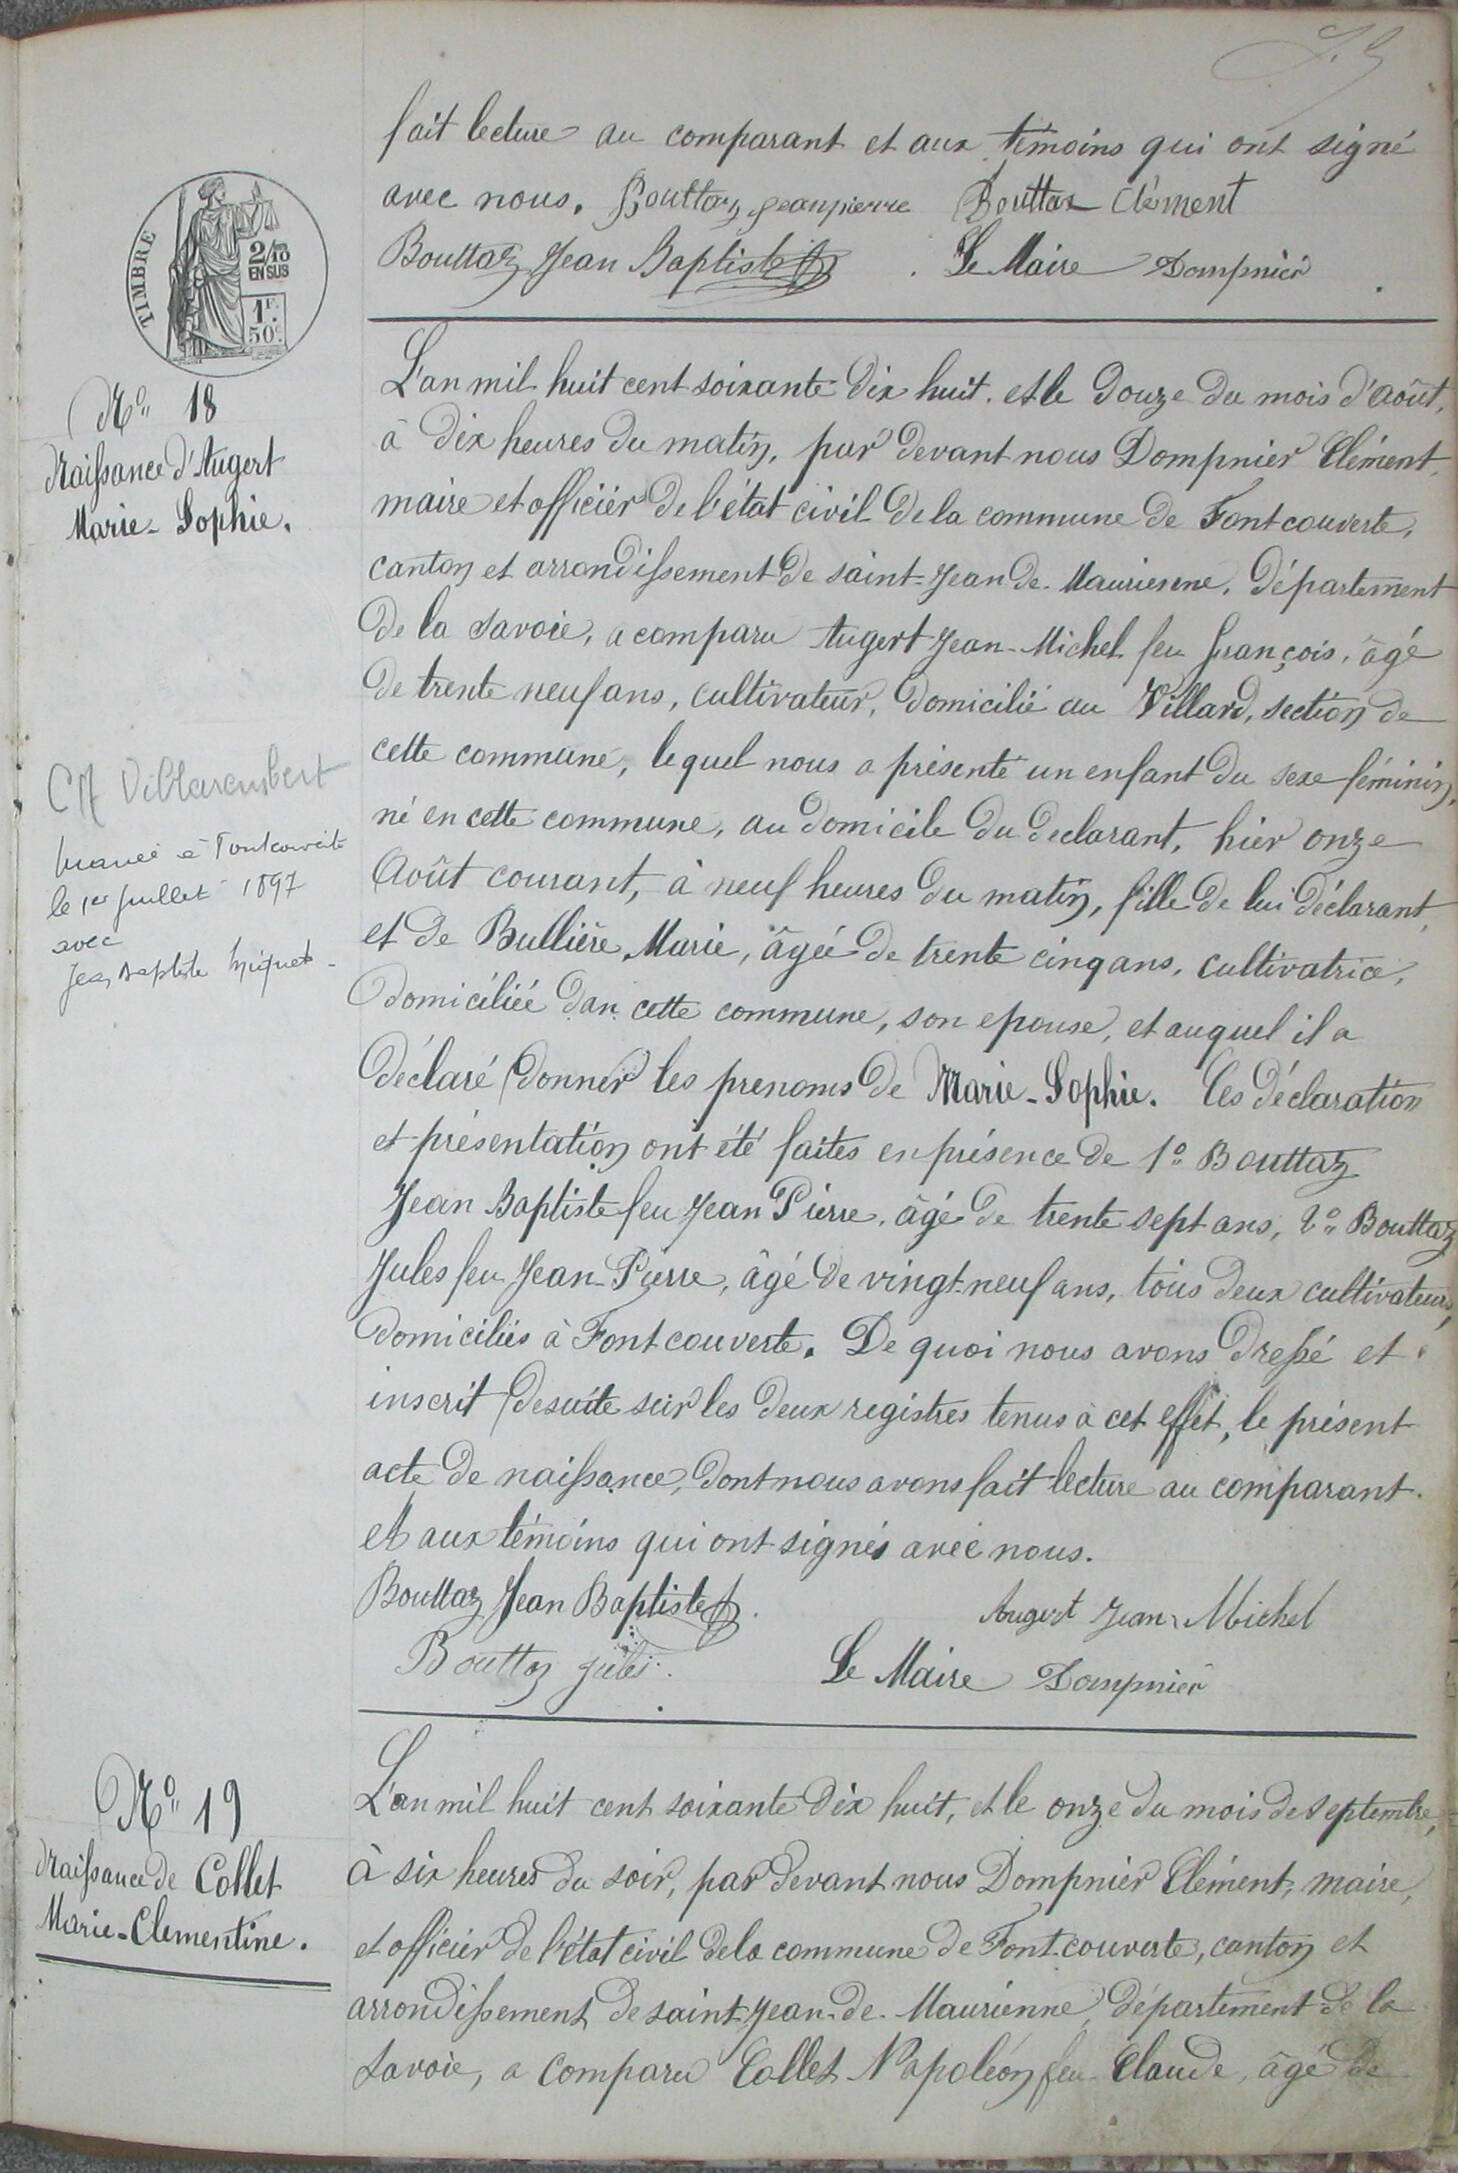 fait lecture au comparant et aux témoins qui ont signé
avec nous. Bouttaz jeanpierre Bouttaz Clément
Bouttaz Jean Baptiste . Le Maire Dompnier
TIMBRE
2/10
EN SUS
1F.
50c.
No 18
Naissance d'Augert
Marie-Sophie.
L'an mil huit cent soixante dix huit. et le douze du mois d'Août,
à dix heures du matin, par devant nous Dompnier Clément,
maire et officier de l'état civil de la commune de Fontcouverte,
canton et arrondissement de saint-Jean-de-Maurienne, département
de la Savoie, a comparu Augert Jean-Michel feu françois, âgé
de trente neuf ans, cultivateur, domicilié au Villard, section de
cette commune, lequel nous a présenté un enfant du sexe féminin,
né en cette commune, au domicile du declarant, hier onze
Août courant, à neuf heures du matin, fille de lui déclarant,
et de Bullière Marie, âgée de trente cinq ans, cultivatrice,
domiciliée dan cette commune, son epouse, et auquel il a
déclaré donner les prenoms de Marie-Sophie. Ces déclaration
et présentation ont été faites en présence de 1o Bouttaz
Jean Baptiste feu Jean Pierre, âgé de trente sept ans, 2o Bouttaz
Jules feu Jean-Pierre, âgé de vingt-neuf ans, tous deux cultivateurs,
domiciliés à Fontcouverte. De quoi nous avons dressé et
inscrit desuite sur les deux registres tenus à cet effet, le présent
acte de naissance, dont nous avons fait lecture au comparant.
et aux témoins qui ont signés avec nous.
Bouttaz Jean Baptiste . Augert Jean-Michel
Bouttaz jules . Le Maire Dompnier
CM Villarembert
marié à Fontcouverte
le 1er juillet 1897
avec
Jean Baptiste Miquet
No 19
Naissance de Collet
Marie-Clementine.
L'an mil huit cent soixante dix huit, et le onze du mois de septembre,
à six heures du soir, par devant nous Dompnier Clément, maire,
et officier de l'état civil de la commune de Fontcouverte, canton et
arrondissement de saint-Jean-de-Maurienne, département de la
Savoie, a comparu Collet Napoléon feu Claude, âgé de